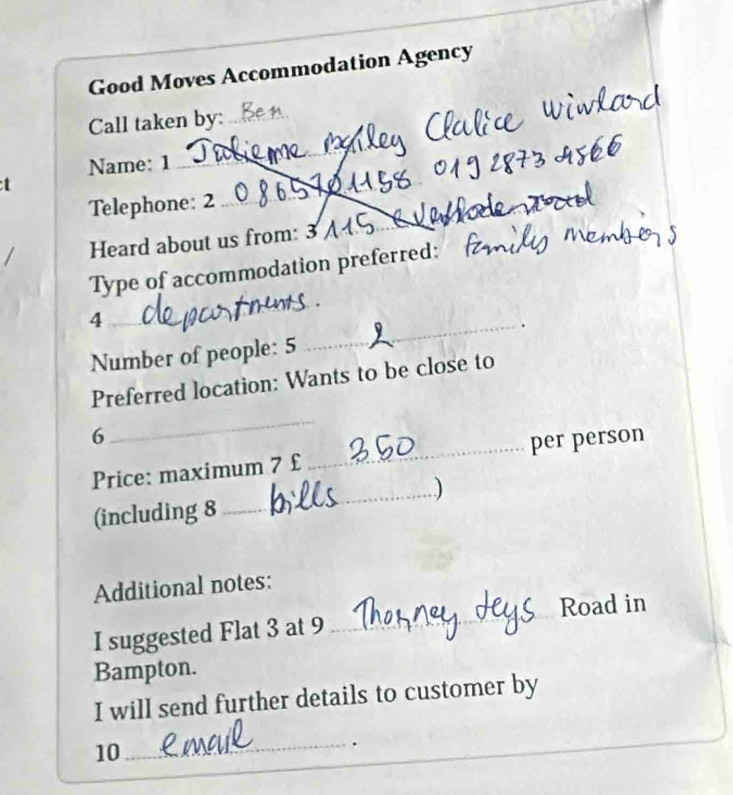 Good Moves Accommodation Agency
Call taken by: Ben
Name: 1 Clalice winlard
Telephone: 2 0865701158 019 2873 4566
Heard about us from: 3 115 family members
Type of accommodation preferred:
4 departments.
Number of people: 5 2 .
Preferred location: Wants to be close to
6
Price: maximum 7 £ 350 per person
(including 8 bills )
Additional notes:
I suggested Flat 3 at 9 Thonney deys Road in
Bampton.
I will send further details to customer by
10 email .